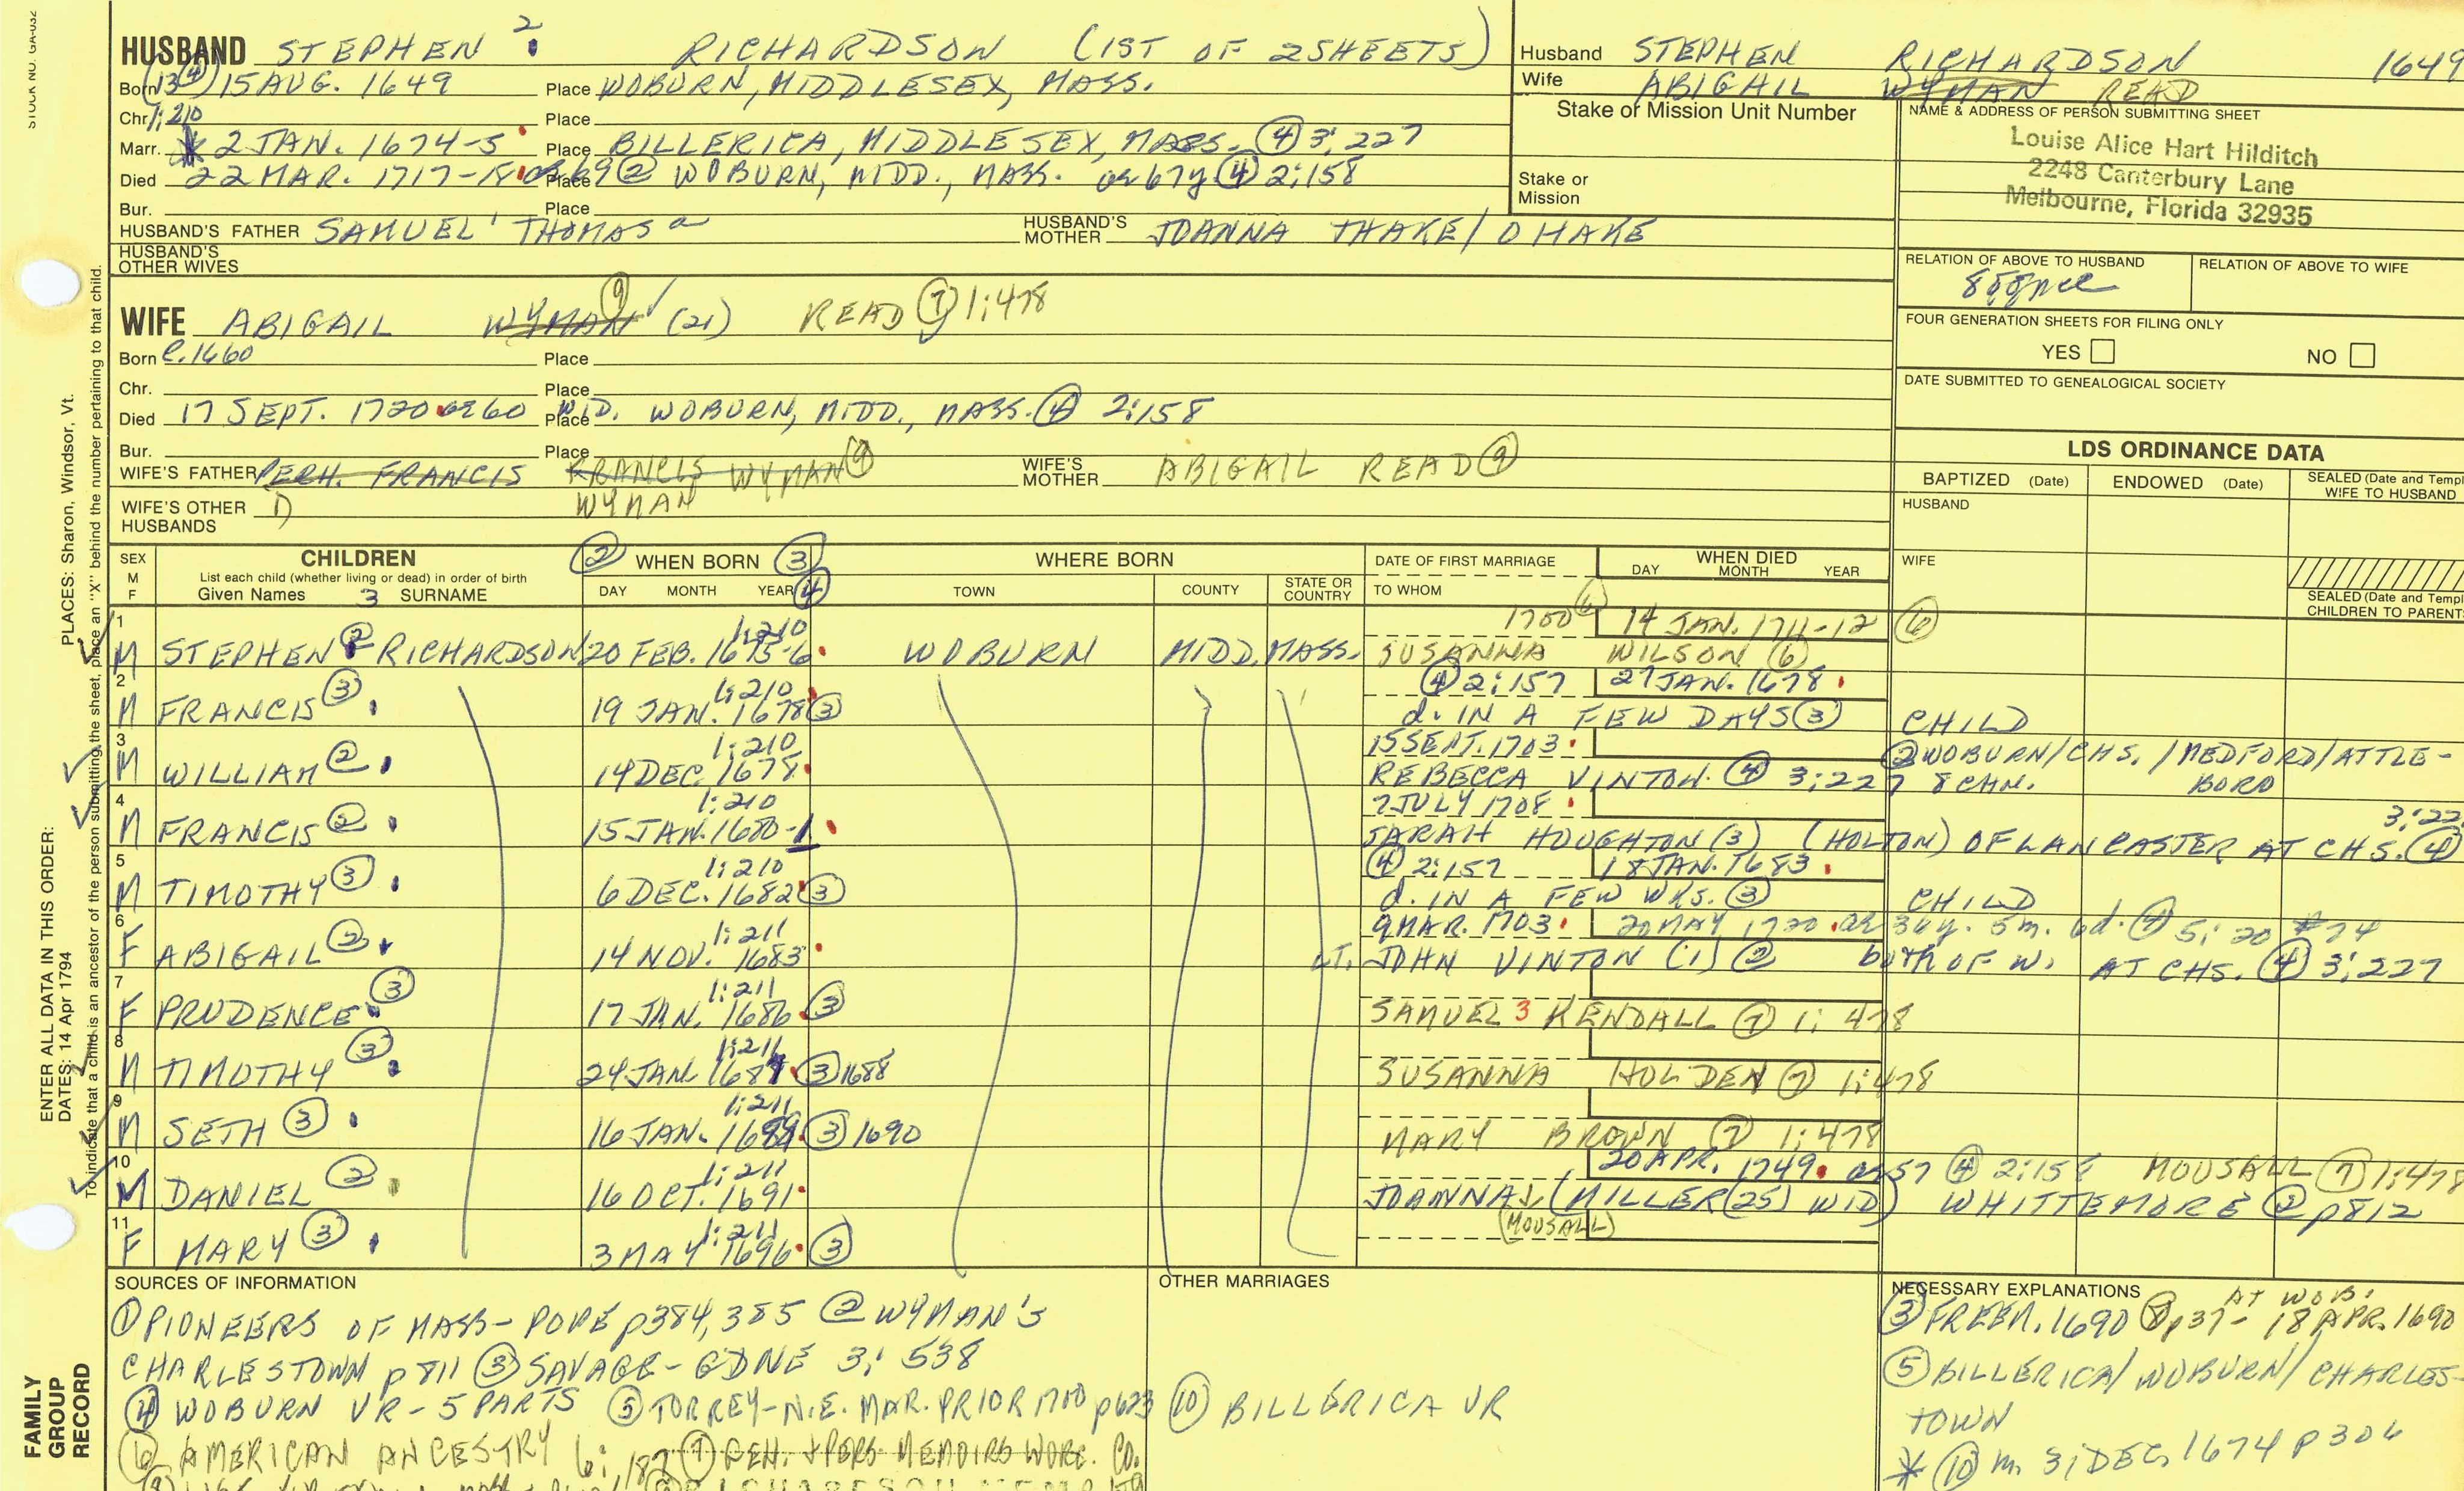 STOCK NO. GA-032
HUSBAND STEPHEN 2 RICHARDSON (1ST OF 2 SHEETS)
Born (13 ④) 15 AUG. 1649 Place WOBURN, MIDDLESEX, MASS.
Chr. 1:210 Place
Marr. * 2 JAN. 1674-5 Place BILLERICA, MIDDLESEX, MASS. ④ 3:227
Died 22 MAR. 1717-18 ae 69 ② Place WOBURN, MIDD., MASS. or 67y ④ 2:158
Bur. Place
HUSBAND'S FATHER SAMUEL 1 THOMAS a HUSBAND'S MOTHER JOANNA THAKE/DHAKE
HUSBAND'S OTHER WIVES
Husband STEPHEN RICHARDSON 1649
Wife ABIGAIL WYMAN READ
Stake or Mission Unit Number
Stake or Mission
NAME & ADDRESS OF PERSON SUBMITTING SHEET
Louise Alice Hart Hilditch
2248 Canterbury Lane
Melbourne, Florida 32935
RELATION OF ABOVE TO HUSBAND RELATION OF ABOVE TO WIFE
FOUR GENERATION SHEETS FOR FILING ONLY
YES NO
DATE SUBMITTED TO GENEALOGICAL SOCIETY
WIFE ABIGAIL WYMAN ⑨ (21) READ ⑦ 1:478
Born c. 1660 Place
Chr. Place
Died 17 SEPT. 1720 ae 60 Place WID. WOBURN, MIDD., MASS. ④ 2:158
Bur. Place
WIFE'S FATHER PERH. FRANCIS FRANCIS WYMAN ⑨ WIFE'S MOTHER ABIGAIL READ ⑨
WYMAN
WIFE'S OTHER HUSBANDS
LDS ORDINANCE DATA
BAPTIZED (Date) ENDOWED (Date) SEALED (Date and Templ WIFE TO HUSBAND
HUSBAND
WIFE
SEALED (Date and Templ CHILDREN TO PARENT
SEX M F CHILDREN ② WHEN BORN ③ ④ WHERE BORN DATE OF FIRST MARRIAGE WHEN DIED
List each child (whether living or dead) in order of birth
Given Names 3 SURNAME DAY MONTH YEAR TOWN COUNTY STATE OR COUNTRY TO WHOM DAY MONTH YEAR
1 1:210 1700 ⑥ 14 JAN. 1711-12 ⑥
M STEPHEN ② RICHARDSON 20 FEB. 1675-6 WOBURN MIDD. MASS. SUSANNA WILSON (6)
2 1:210 ④ 2:157 27 JAN. 1678
M FRANCIS ③ 19 JAN. 1678 ③ d. IN A FEW DAYS ③ CHILD
3 1:210 15 SEPT. 1703 ② WOBURN/CHS./MEDFORD/ATTLE-
M WILLIAM ② 14 DEC. 1678 REBECCA VINTON ④ 3:227 8 CHN. BORO
4 1:210 7 JULY 1708 3:22
M FRANCIS ② 15 JAN. 1680-1 SARAH HOUGHTON (3) (HOLTON) OF LANCASTER AT CHS. ④
5 1:210 ④ 2:157 18 JAN. 1683
M TIMOTHY ③ 6 DEC. 1682 ③ d. IN A FEW WKS. ③ CHILD
6 1:211 9 MAR. 1703 20 MAY 1720 ae 36y. 5m. 6d. ④ 5:20 #74
F ABIGAIL ② 14 NOV. 1683 LT. JOHN VINTON (1) ② both OF W. AT CHS. ④ 3:227
7 1:211
F PRUDENCE ③ 17 JAN. 1686 ③ SAMUEL 3 KENDALL ⑦ 1:478
8 1:211
M TIMOTHY ③ 24 JAN. 1687 ③ 1688 SUSANNA HOLDEN ⑦ 1:478
9 1:211
M SETH ③ 16 JAN. 1689 ③ 1690 MARY BROWN ⑦ 1:478
10 1:211 20 APR. 1749 ae 57 ④ 2:158 MOUSALL ⑦ 1:478
M DANIEL ② 16 OCT. 1691 JOANNA (MILLER (25) WID) WHITTEMORE ② p812
11 1:211 (MOUSALL)
F MARY ③ 3 MAY 1696 ③
SOURCES OF INFORMATION
① PIONEERS OF MASS-POPE p384,385 ② WYMAN'S
CHARLESTOWN p811 ③ SAVAGE-GDNE 3:538
④ WOBURN VR-5 PARTS ⑤ TORREY-N.E. MAR. PRIOR 1700 p623
⑥ AMERICAN ANCESTRY 6:187 ⑦ GEN. + PERS. MEMOIRS WORC. CO.
OTHER MARRIAGES
⑩ BILLERICA VR
NECESSARY EXPLANATIONS AT WOB.
③ FREEM. 1690 ⑧ p37- 18 APR. 1690
⑤ BILLERICA/WOBURN/CHARLES-
TOWN
* ⑩ m. 31 DEC. 1674 p306
PLACES: Sharon, Windsor, Vt.
ENTER ALL DATA IN THIS ORDER:
DATES: 14 Apr 1794
To indicate that a child is an ancestor of the person submitting the sheet, place an "X" behind the number pertaining to that child.
FAMILY GROUP RECORD